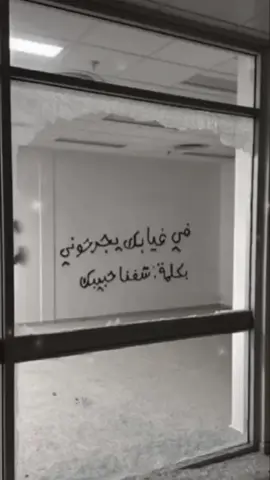 في غيابك يجرحوني
بكلمة: شفنا حبيبك